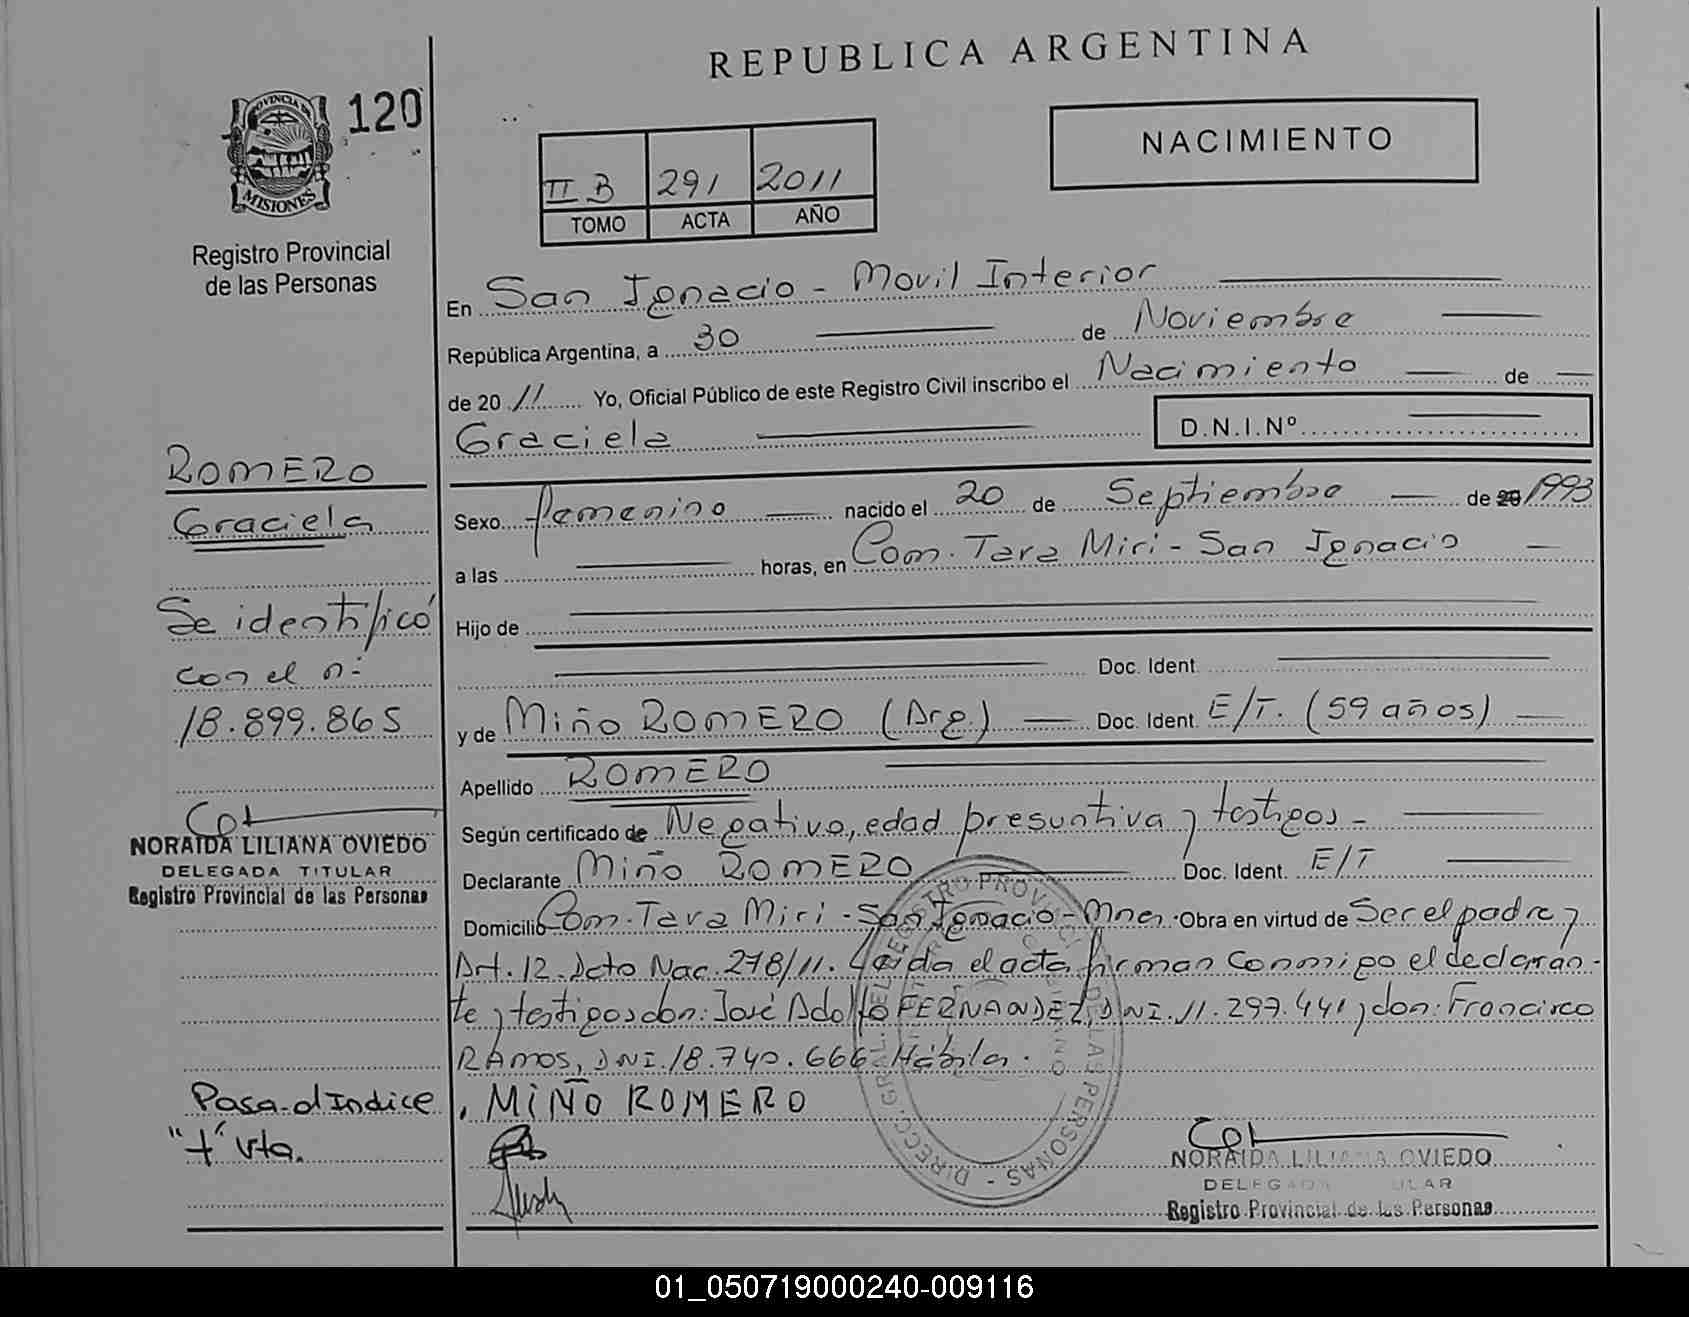 REPUBLICA ARGENTINA
PROVINCIA DE
MISIONES
120
Registro Provincial
de las Personas
NACIMIENTO
II B 291 2011
TOMO ACTA AÑO
En San Ignacio - Movil Interior
República Argentina, a 30 de Noviembre
de 20 11 Yo, Oficial Público de este Registro Civil inscribo el Nacimiento de
Graciela D.N.I.Nº
ROMERO
Graciela
Se identificó
con el nº
18.899.865
NORAIDA LILIANA OVIEDO
DELEGADA TITULAR
Registro Provincial de las Personas
Pasa al Indice
"t" vta.
Sexo femenino nacido el 20 de Septiembre de 20 1993
a las horas, en Com. Tava Miri - San Ignacio
Hijo de
Doc. Ident.
y de Miño ROMERO (Arg.) Doc. Ident. E/T. (59 años)
Apellido ROMERO
Según certificado de Negativo, edad presuntiva y testigos -
Declarante Miño ROMERO Doc. Ident. E/T
Domicilio Com. Tava Miri - San Ignacio - Mnes. Obra en virtud de Ser el padre y
Art. 12. Dcto Nac. 278/11. Leída el acta firman conmigo el declaran-
te y testigos don: José Adolfo FERNANDEZ, DNI. 11.297.441 y don: Francisco
RAMOS, DNI. 18.740.666 Hábiles.
MIÑO ROMERO
NORAIDA LILIANA OVIEDO
DELEGADA TITULAR
Registro Provincial de las Personas
DIRECC. GRAL. DEL REGISTRO PROVINCIAL DE LAS PERSONAS
01_050719000240-009116